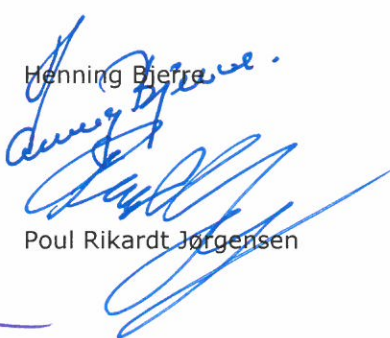 Henning Bjerre
Henning Bjerre.
Poul Rikardt Jørgensen